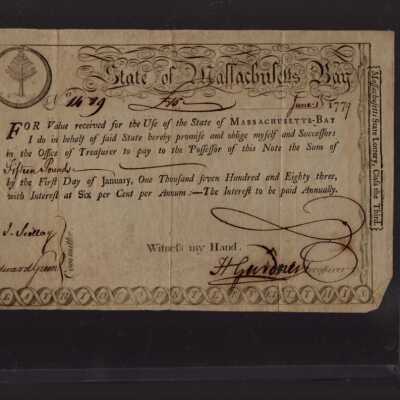 State of Massachusetts Bay
No. 1419 £15 June 1st 1779
FOR Value received for the Use of the State of MASSACHUSETTS-BAY
I do in behalf of said State hereby promise and oblige myself and Successors
in the Office of Treasurer to pay to the Possessor of this Note the Sum of
Fifteen Pounds
by the First Day of January, One Thousand seven Hundred and Eighty three,
with Interest at Six per Cent per Annum:—The Interest to be paid Annually.
Committee
Witness my Hand.
H Gardner Treasurer
Massachusetts State Lottery, Class the Third.